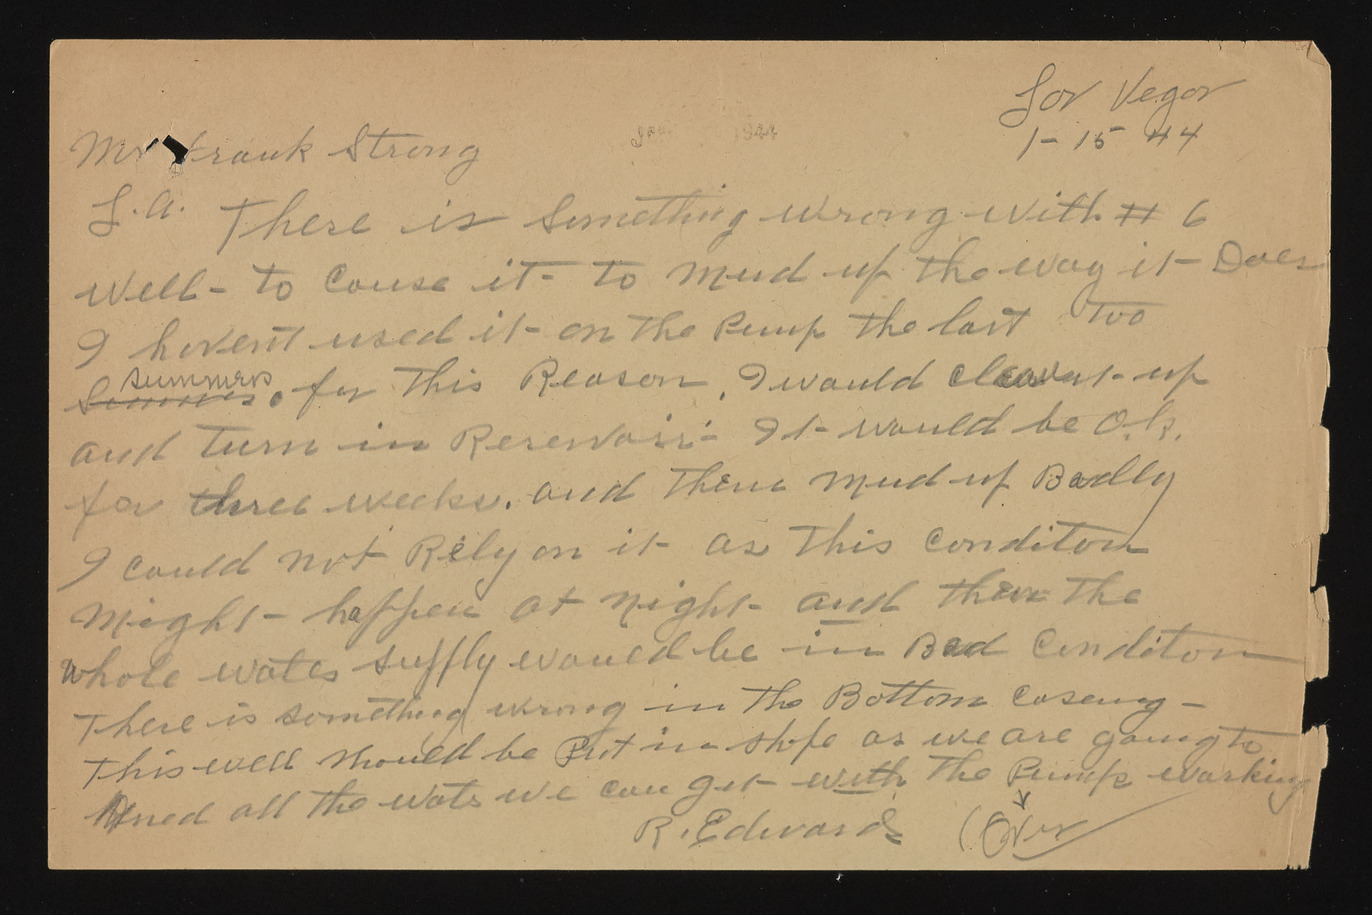 Los Vegos
1-15 44
Jan 1944
Mr Frank Strong
L.A. There is something wrong with # 6
well - to couse it - to mud up the way it - Does
I hovent used it - on the Pump the last two
summers
for this Reason, I would clean it - up
and turn in Reservoir - It - would be O.k.
for three weeks. and then mud up Badly
I could not Rely on it - as this conditon
might - happen at night - and then the
whole water supply would be in Bad Conditon
There is something wrong in the Bottom caseing -
This well should be Put in shope as we are going to
need all the water we can get - with the Pumps working
R. Edwards (Over